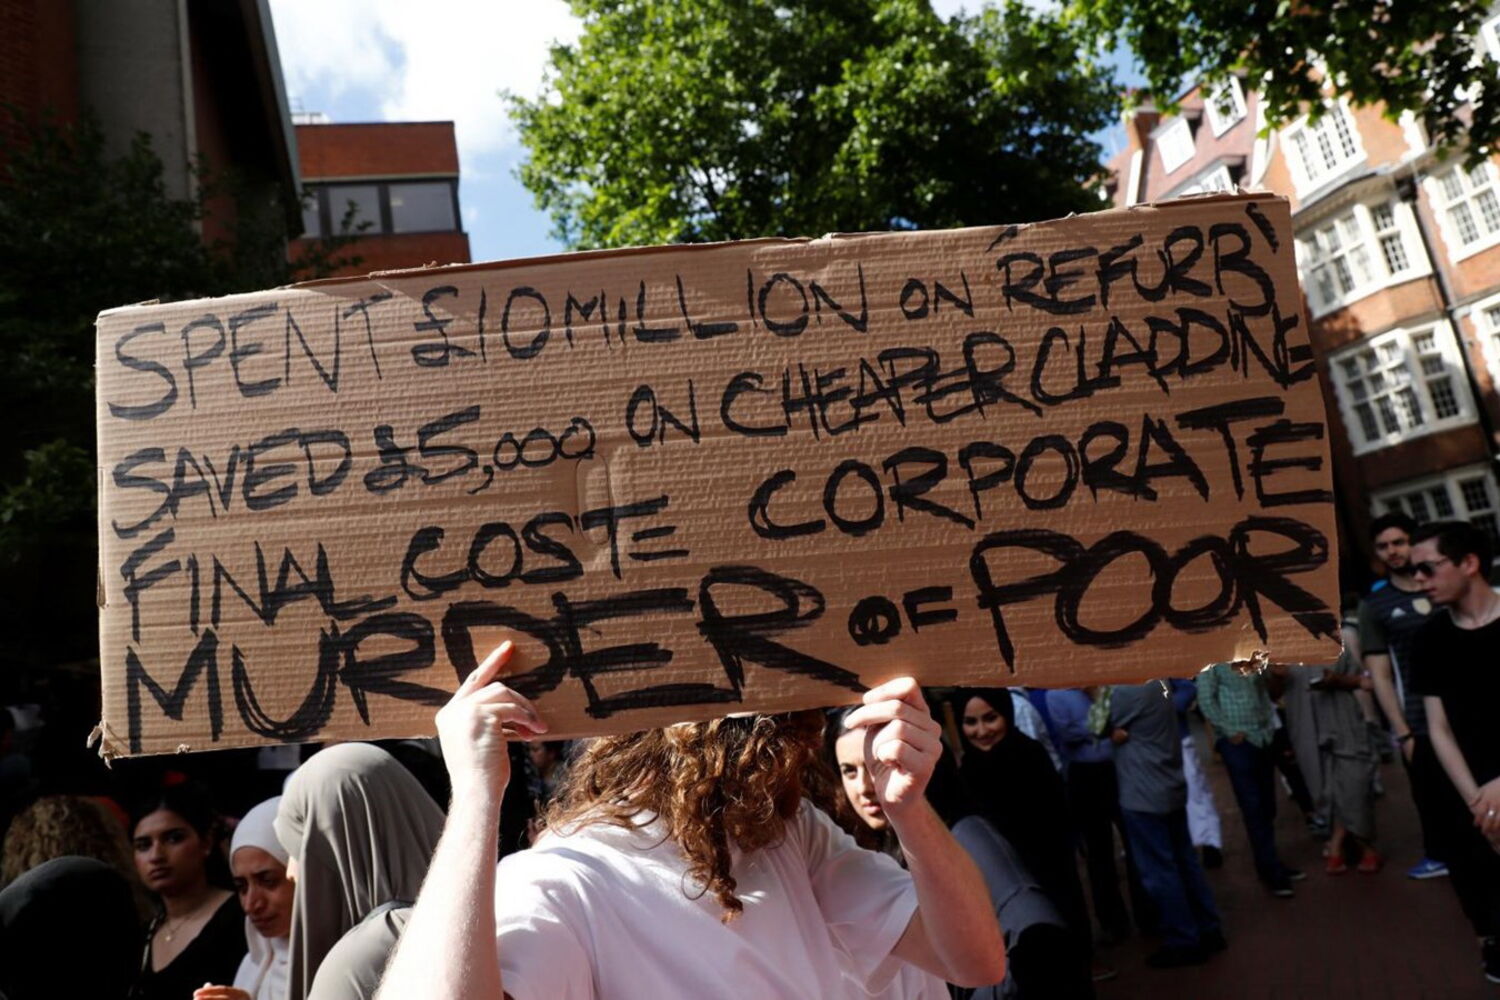 SPENT £10 MILLION ON 'REFURB'
SAVED £5,000 ON CHEAPER CLADDING
FINAL COSTE CORPORATE
MURDER OF POOR